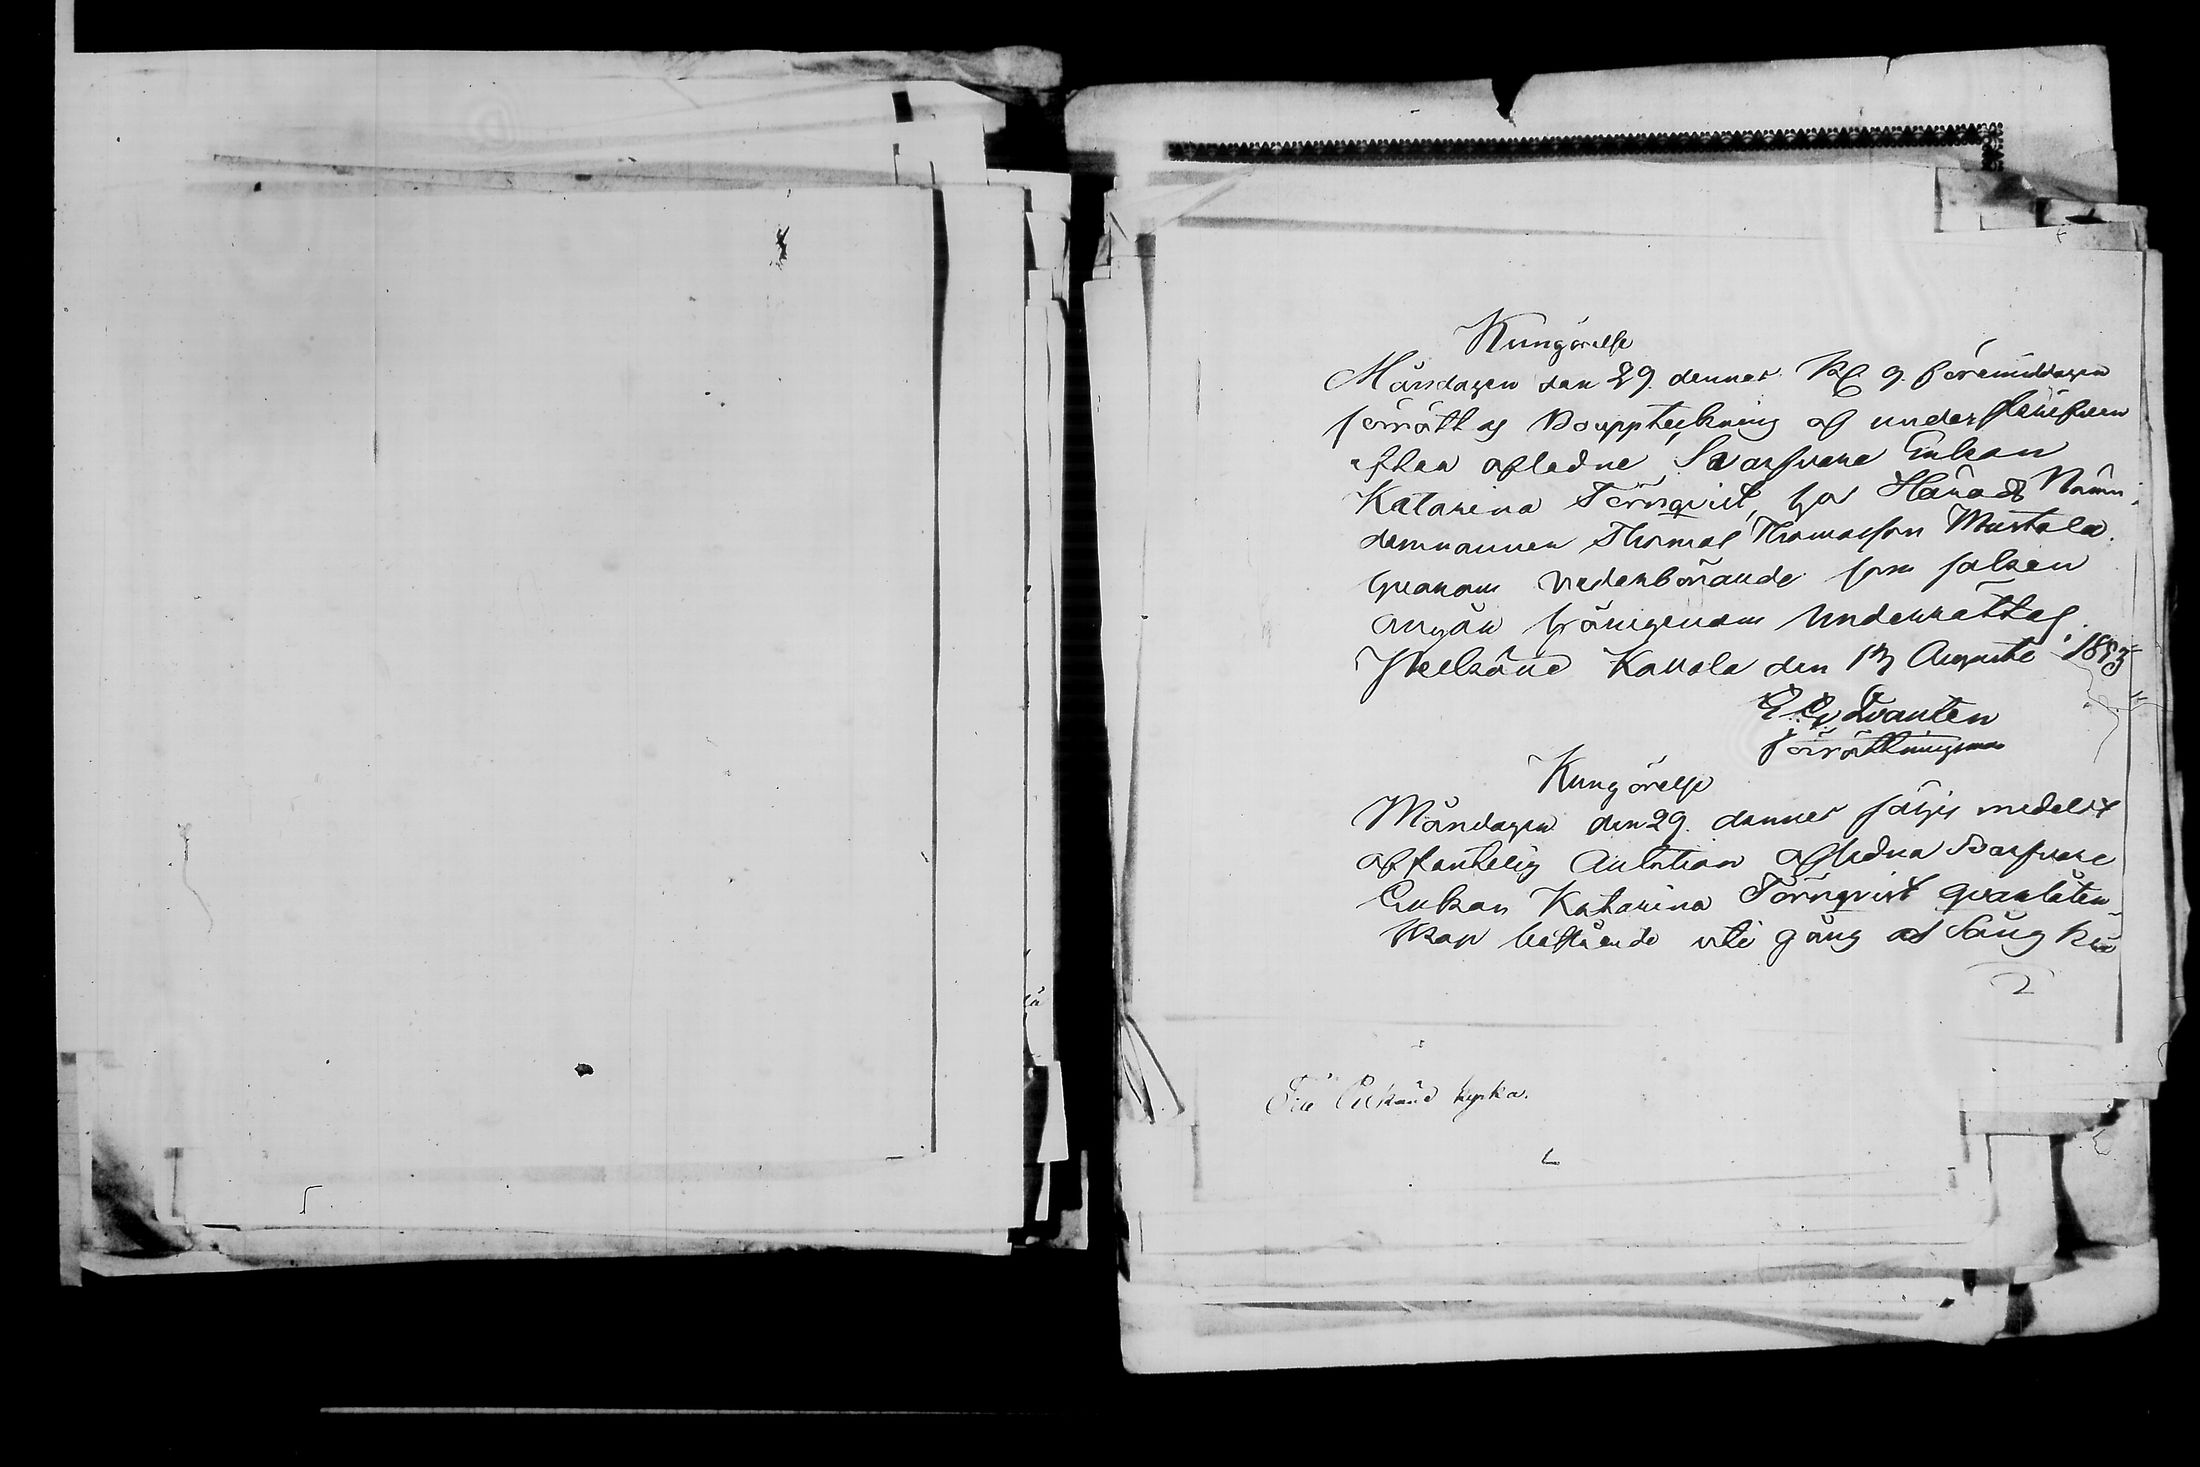 Kungörelse
Måndagen den 29 dennes Kl 9 förmiddagen
förrättas Bouppteckning af underskrifven
efter aflidne Svarfvare Enkan
Katarina Törnqvist, hos Härads Näm-
demannen Thomas Thomasson Mustala
hvarom vederbörande som saken
angår härigenom Underrättas.
Kavala den 17 Augusti 1883
E. G. Qvanten
förrättningsman
Kungörelse
Måndagen den 29 dennes säljes medelst
offentelig Auktion aflidna Svarfvare
Enkan Katarina Törnqvist qvarlåten-
skap bestående uti gång och Säng klä
Till kyrka.